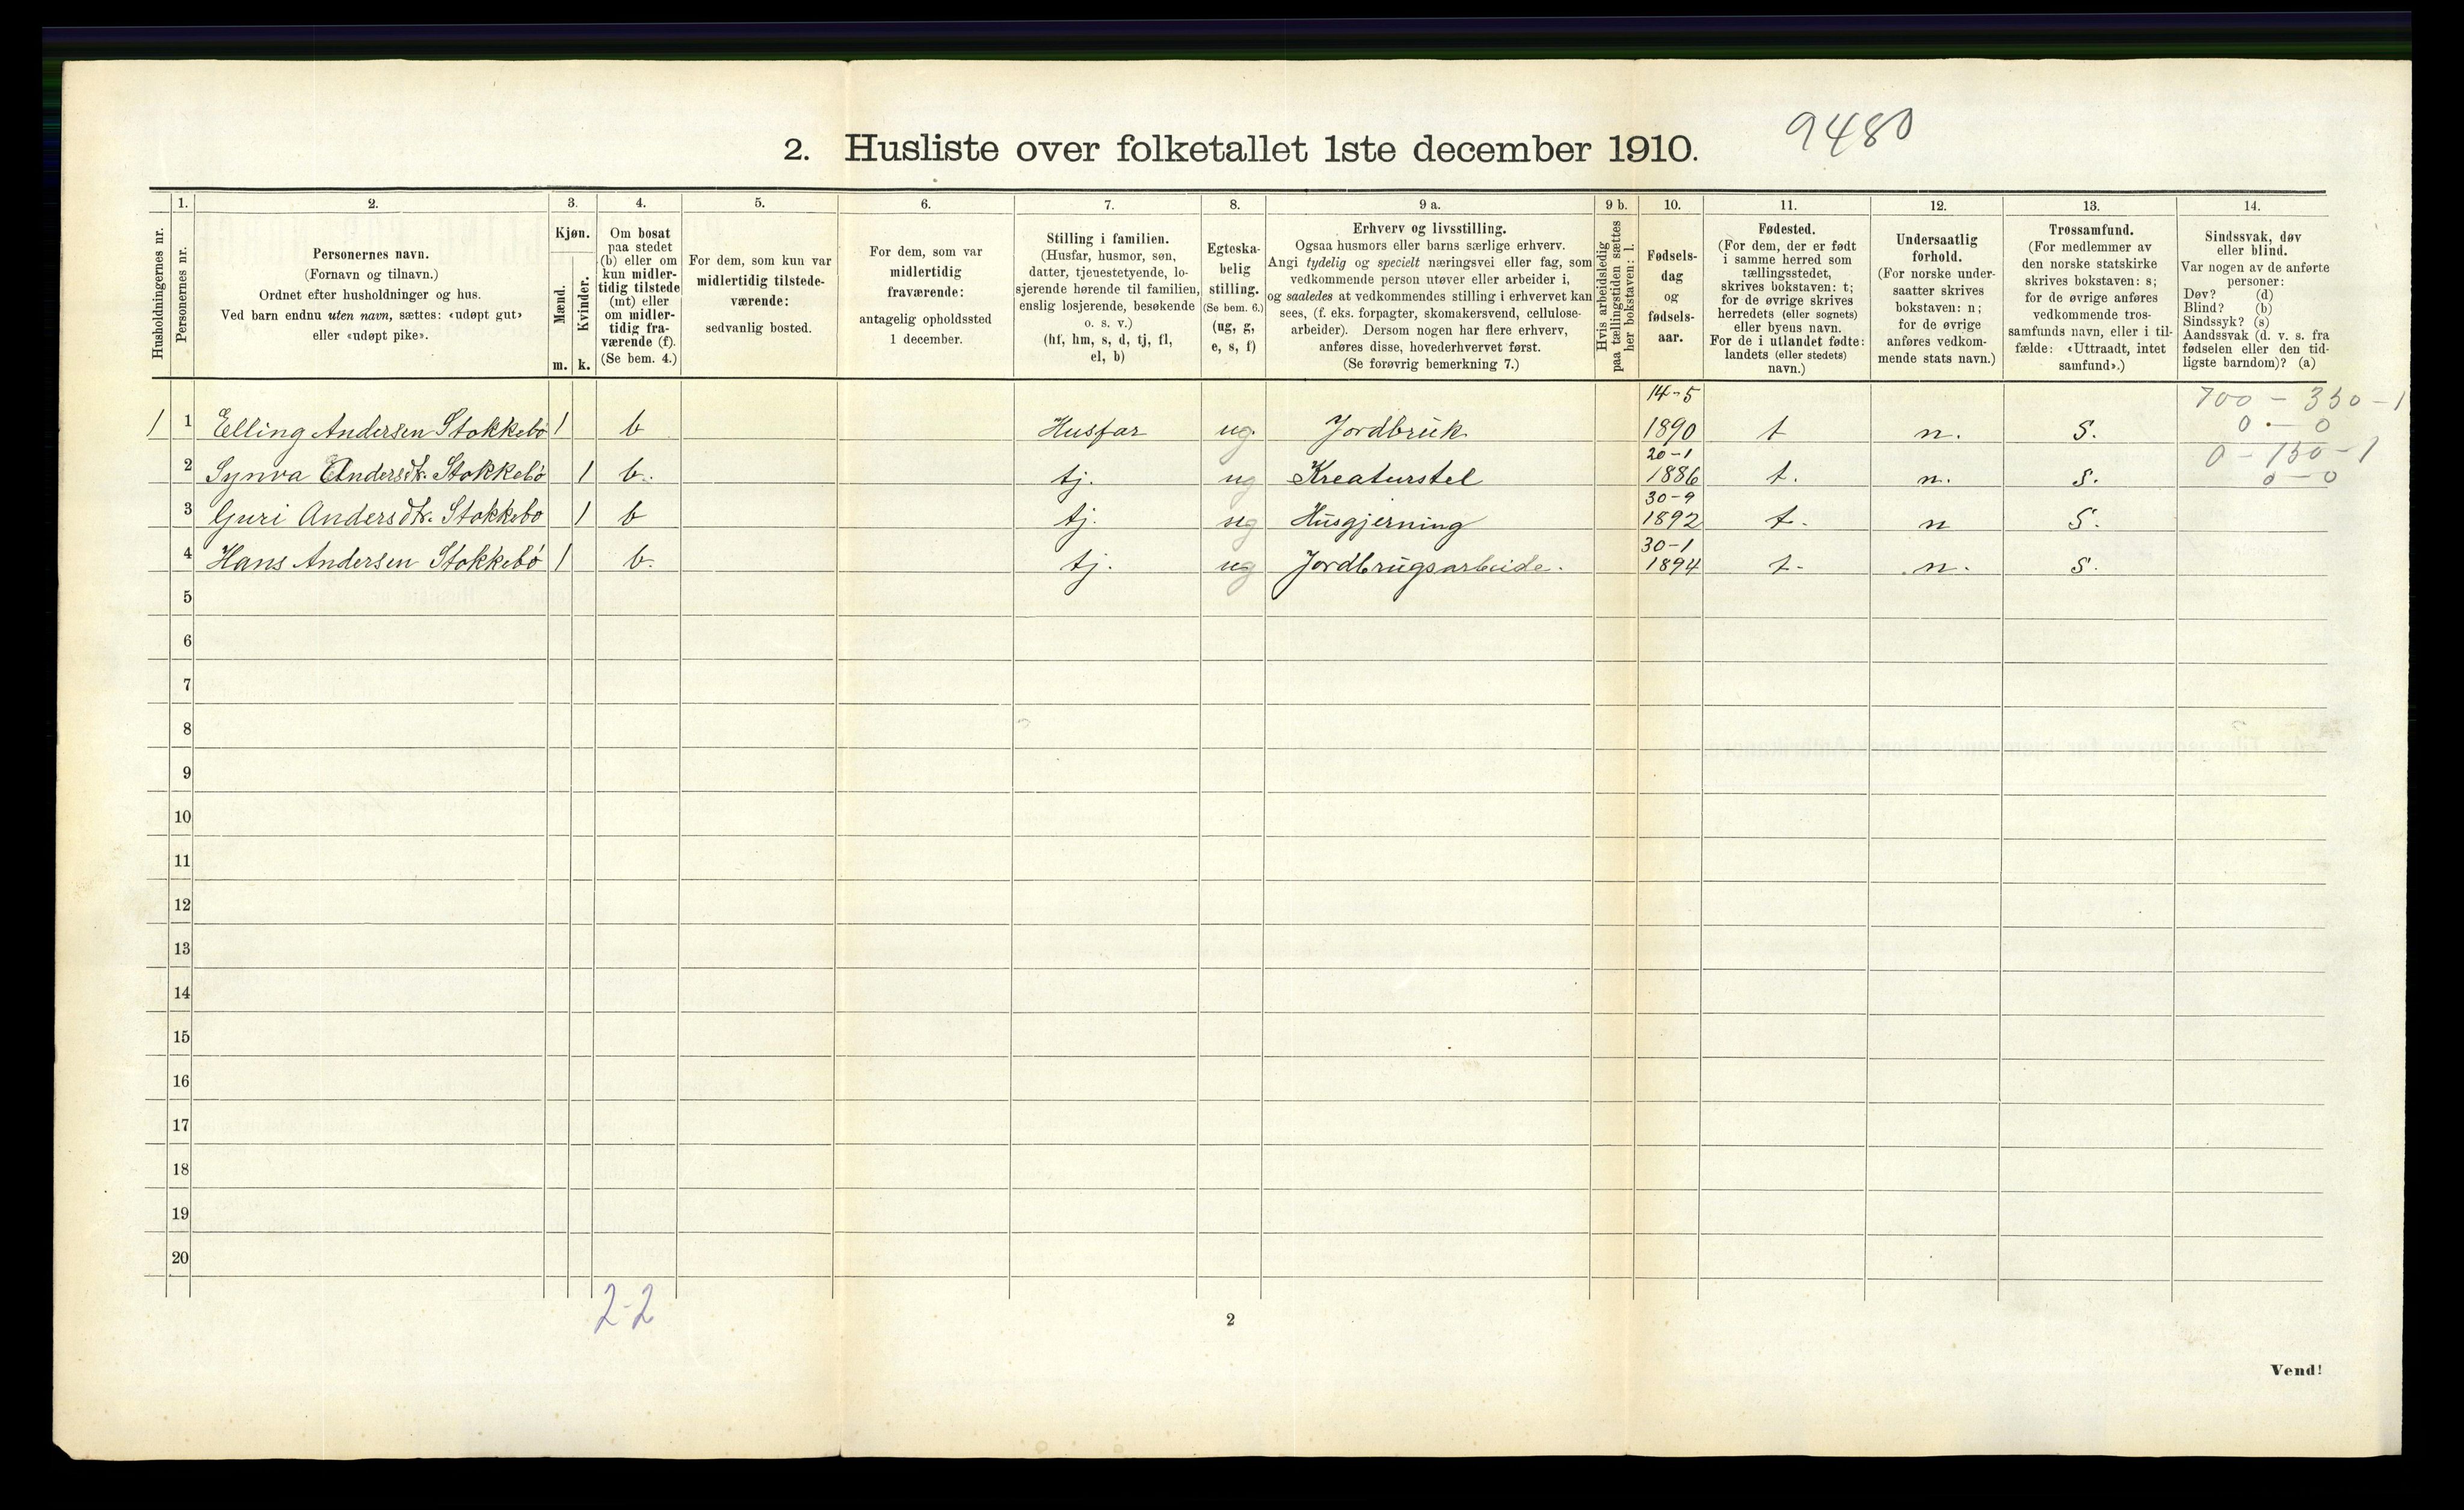 2. Husliste over folketallet 1ste december 1910. 9480
Husholdningernes nr.
1.
Personernes nr.
2.
Personernes navn.
(Fornavn og tilnavn.)
Ordnet efter husholdninger og hus.
Ved barn endnu uten navn, sættes: «udøpt gut»
eller «udøpt pike».
3.
Kjøn.
Mænd.
Kvinder.
m. k.
4.
Om bosat
paa stedet
(b) eller om
kun midler-
tidig tilstede
(mt) eller
om midler-
tidig fra-
værende (f).
(Se bem. 4.)
5.
For dem, som kun var
midlertidig tilstede-
værende:
sedvanlig bosted.
6.
For dem, som var
midlertidig
fraværende:
antagelig opholdssted
1 december.
7.
Stilling i familien.
(Husfar, husmor, søn,
datter, tjenestetyende, lo-
sjerende hørende til familien,
enslig losjerende, besøkende
o. s. v.)
(hf, hm, s, d, tj, fl,
el, b)
8.
Egteska-
belig
stilling.
(Se bem. 6.)
(ug, g,
e, s, f)
9 a.
Erhverv og livsstilling.
Ogsaa husmors eller barns særlige erhverv.
Angi tydelig og specielt næringsvei eller fag, som
vedkommende person utøver eller arbeider i,
og saaledes at vedkommendes stilling i erhvervet kan
sees, (f. eks. forpagter, skomakersvend, cellulose-
arbeider). Dersom nogen har flere erhverv,
anføres disse, hovederhvervet først.
(Se forøvrig bemerkning 7.)
9 b.
Hvis arbeidsledig
paa tællingstiden sættes
her bokstaven: l.
10.
Fødsels-
dag
og
fødsels-
aar.
11.
Fødested.
(For dem, der er født
i samme herred som
tællingsstedet,
skrives bokstaven: t;
for de øvrige skrives
herredets (eller sognets)
eller byens navn.
For de i utlandet fødte:
landets (eller stedets)
navn.)
12.
Undersaatlig
forhold.
(For norske under-
saatter skrives
bokstaven: n;
for de øvrige
anføres vedkom-
mende stats navn.)
13.
Trossamfund.
(For medlemmer av
den norske statskirke
skrives bokstaven: s;
for de øvrige anføres
vedkommende tros-
samfunds navn, eller i til-
fælde: «Uttraadt, intet
samfund».)
14.
Sindssvak, døv
eller blind.
Var nogen av de anførte
personer:
Døv? (d)
Blind? (b)
Sindssyk? (s)
Aandssvak (d. v. s. fra
fødselen eller den tid-
ligste barndom)? (a)
14-5 700 - 350 - 1
1 1 Elling Andersen Stokkebø 1 b Husfar ug. Jordbruk 1890 t n. S. 0 - 0
20-1 0 - 150 - 1
2 Synva Andersdtr. Stokkebø 1 b. tj. ug Kreaturstel 1886 t. n. S. 0 - 0
30-9
3 Guri Andersdtr. Stokkebø 1 b tj. ug Husgjerning 1892 t. n S.
30-1
4 Hans Andersen Stokkebø 1 b. tj. ug Jordbrugsarbeide. 1894 t. n. S.
5
6
7
8
9
10
11
12
13
14
15
16
17
18
19
20
2-2
2
Vend!